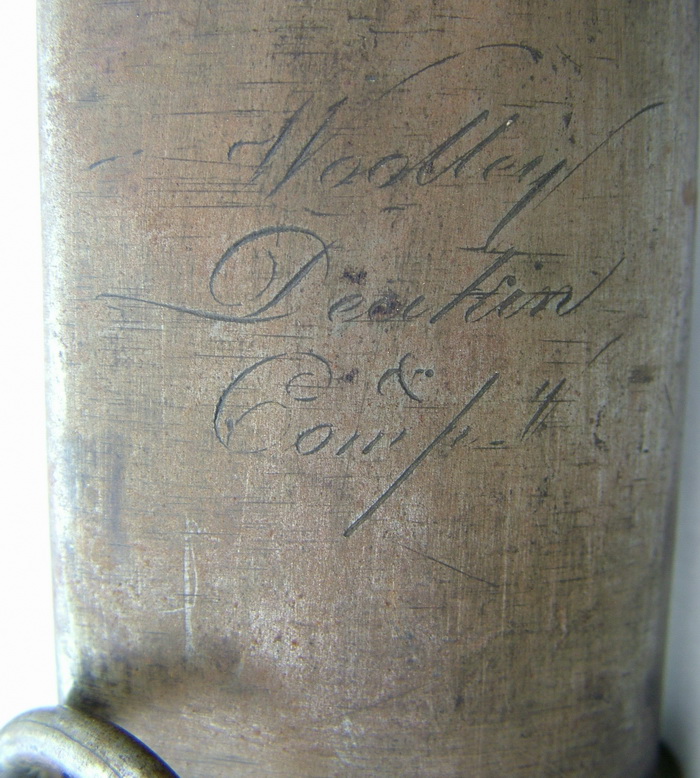 Woolley
Deakin
&
Comp.y